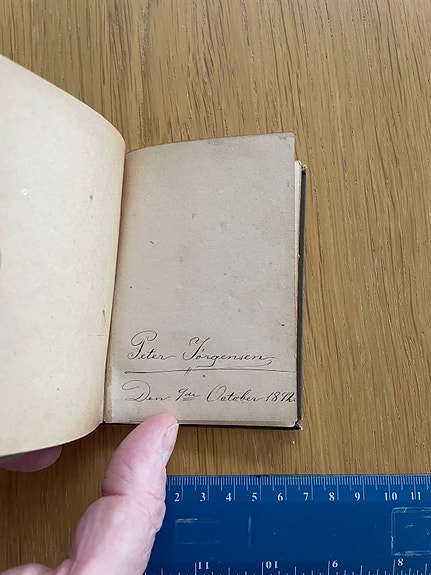 Peter Jørgensen
Den 9de October 1892.
2 3 4 5 6 7 8 9 10 11
11 10 9 8